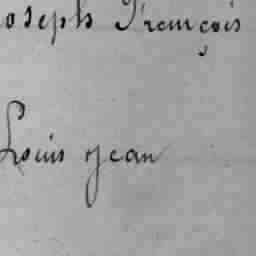 oseph François
Louis Jean